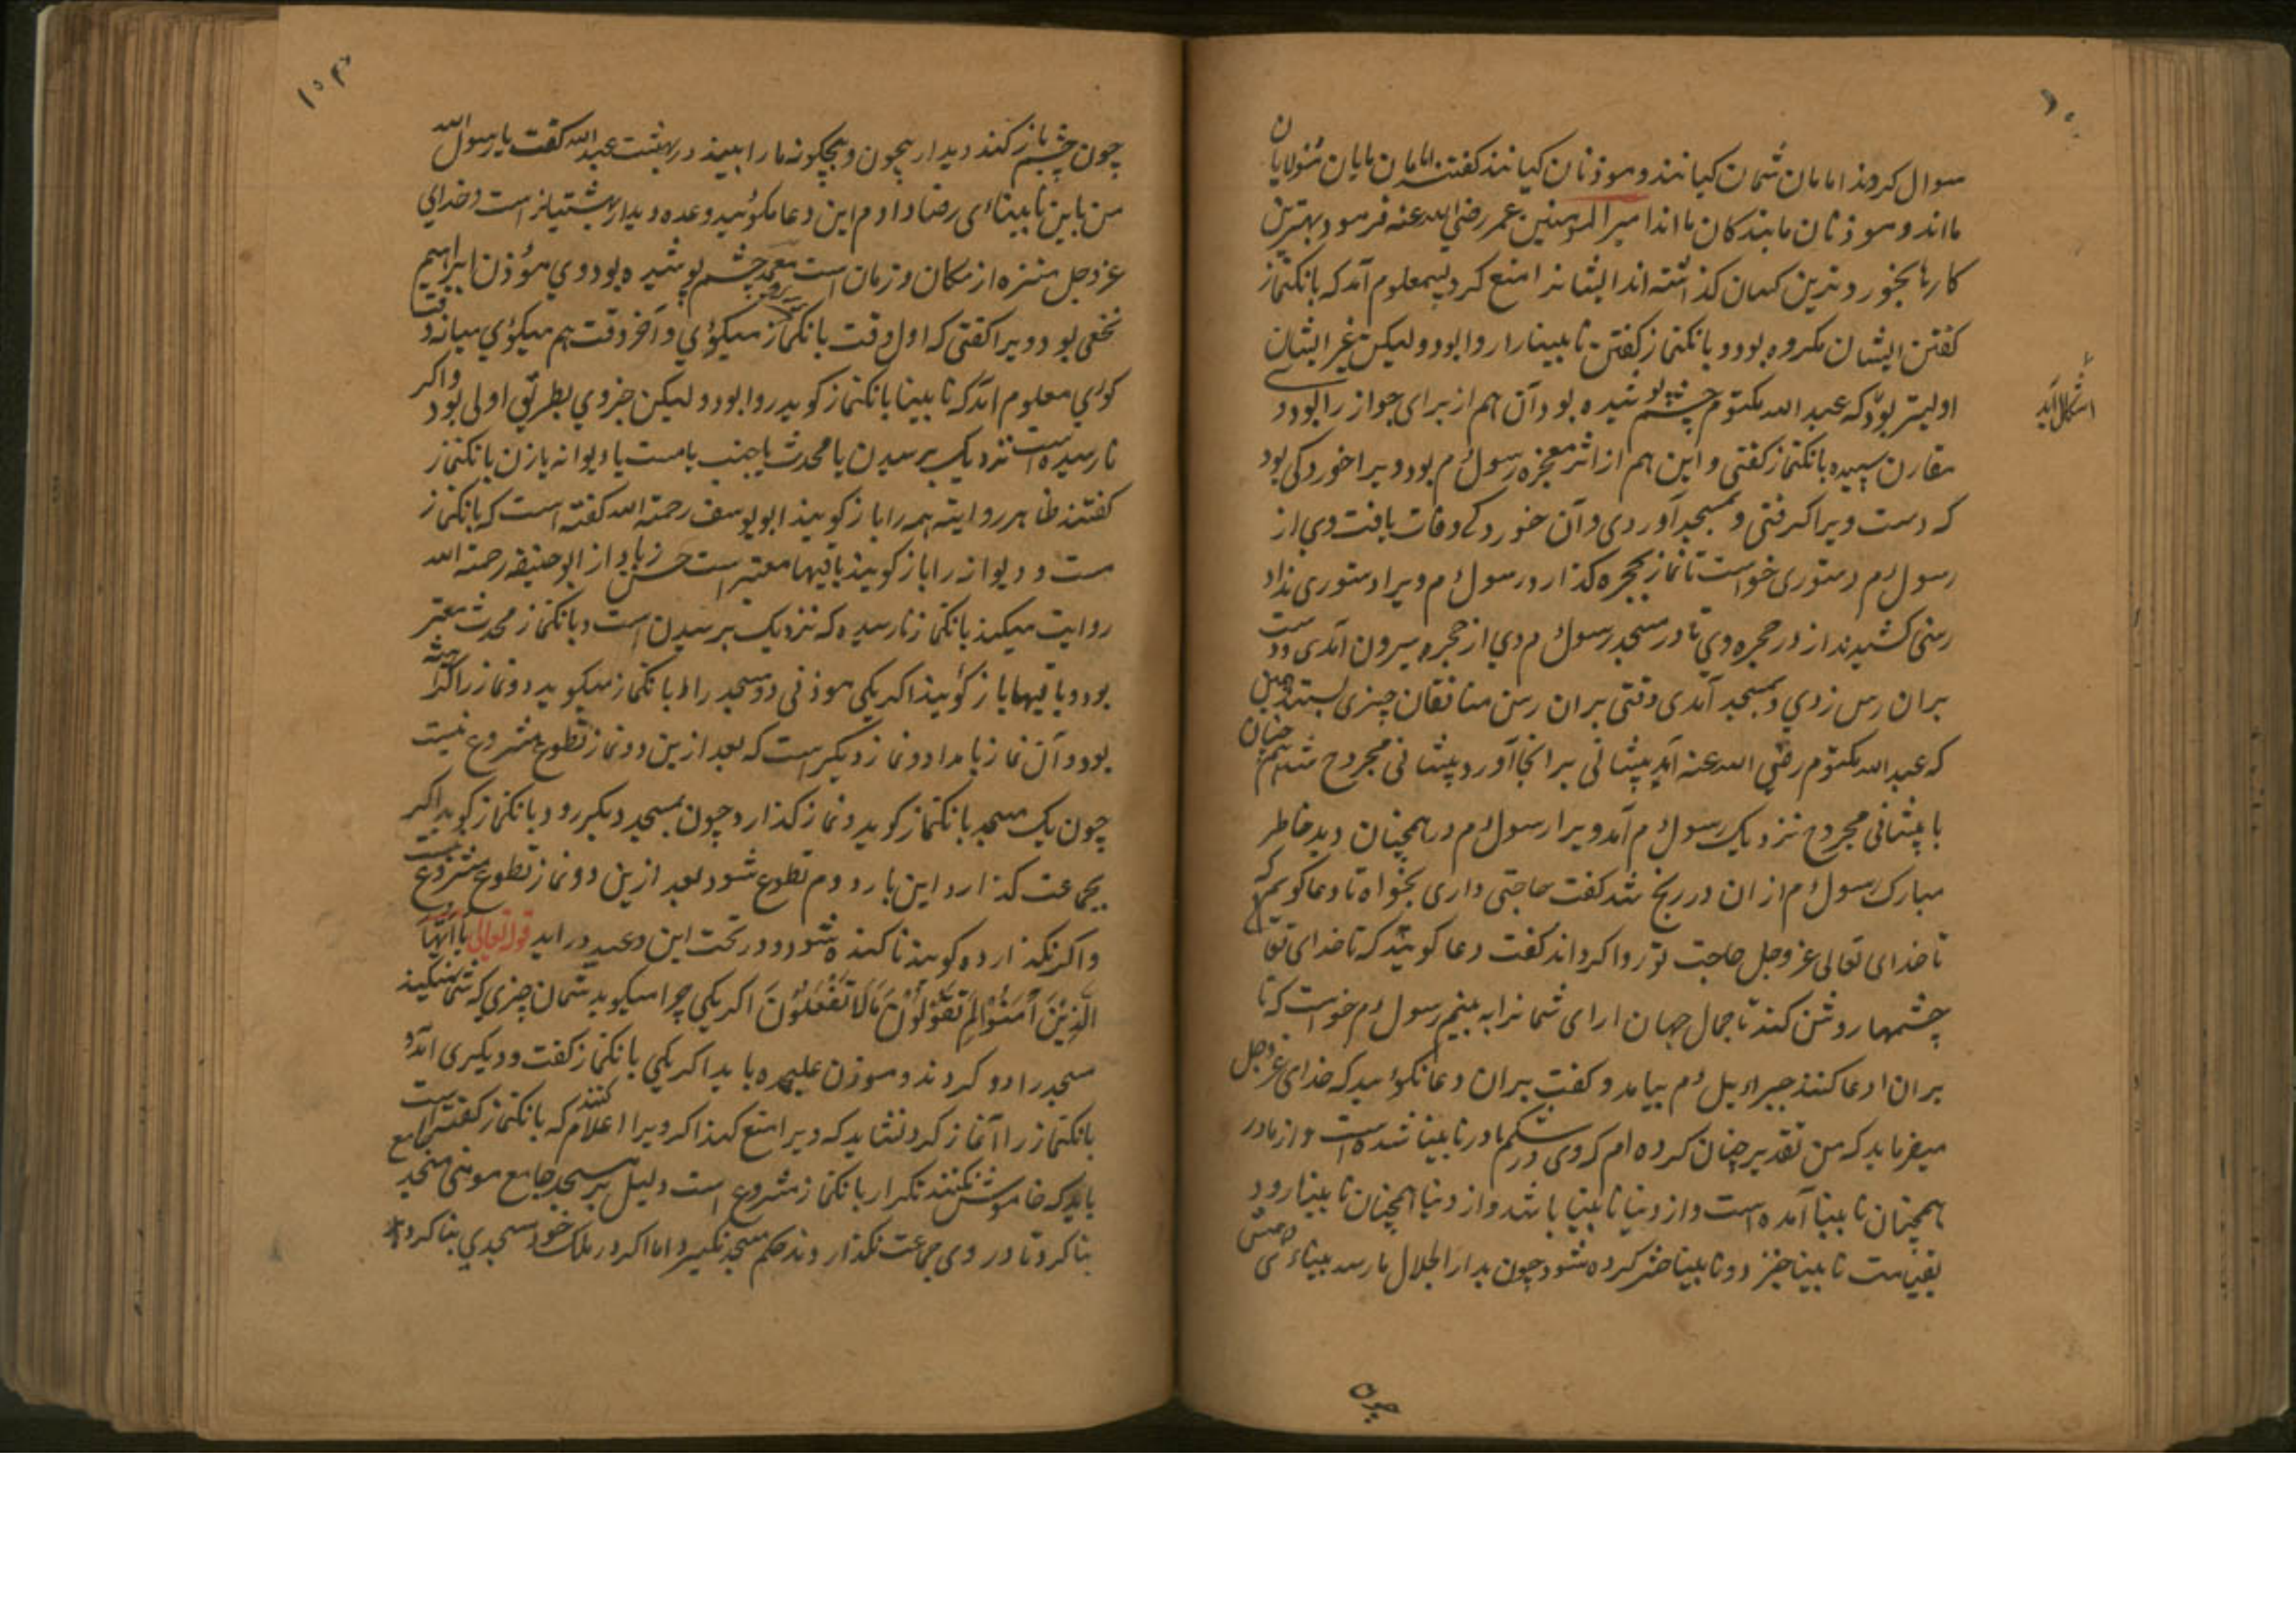 سوال کردند امامان شمان کیانند و موذنان کیانند گفتند امامان مایان مولایان
مااند و موذنان ما بندکان مااند امیر المومنین عمر رضی الله عنه فرمود بهترین
کارها بخورد ترین کسان گذاشته اند ایشانرا منع کرد پس معلوم آمد که بانکنماز
کفتن ایشان مکروه بود و بانکنماز کفتن نابینا را روا بود و لیکن غیر ایشان
اولیتر بود که عبد الله مکتوم چشم پوشیده بود و آن هم از برای جواز را بود و
مقارن سپیده بانکنماز کفتی و این هم از اثر معجزه رسول م بود ویرا خوردکی بود
که دست ویرا کرفتی و بمسجد آوردی و آن خوردکی وفات یافت وی از
رسول م دستوری خواست تا نماز بحجره کذارد رسول م ویرا دستوری نداد
رسنی کشیدند از در حجره وی تا در مسجد رسول م وی از حجره بیرون آمدی و دست
بران رسن زدی و بمسجد آمدی وقتی بران رسن منافقان چیزی بستند
که عبد الله مکتوم رضی الله عنه آمد پیشانی برانجا آورد پیشانی مجروح شد هم چنان
با پیشانی مجروح نزدیک رسول م آمد ویرا رسول م در همچنان دید خاطر
مبارک رسول م ازان در رنج شد کفت حاجتی داری بخواه تا دعا کویم که
تا خدای تعالی عز وجل حاجت تو روا کرداند کفت دعا کوئید که تا خدای تعا
چشمها روشن کند تا جمال جهان ارای شمانرا به بینم رسول م خواست که تا
بران ادعا کنند جبراییل م بیامد و کفت بران دعا نکوئید که خدای عز وجل
میفرماید که من تقدیر چنان کرده ام که وی در شکم مادر نابینا شده است و از مادر
همچنان نابینا آمده است و از دنیا نابینا باشد و از دنیا همچنان نابینا رود
بقیامت نابینا خیزد و نابینا حشر کرده شود چون بدار الجلال ما رسد بیناءی
چون
چون چشم باز کند دیدار بیچون و بیچکونه ما را بیند در بهشت عبد الله کفت یا رسول الله
من باین نابیناءی رضا دادم این دعا مکوئید وعده دیدار بهشتیانراست و خدای
عز وجل منزه از مکان و زمان است چشم پوشیده بود وی مؤذن ابراهیم
نخعی بود ویرا کفتی که اول وقت بانکنماز میکوئی و آخر وقت هم میکوئی میانه وقت
کوی معلوم آمد که نابینا بانکنماز کوید روا بود و لیکن جز وی بطریق اولی بود و اکر
نارسیده است نزدیک برسیدن یا محدث یا جنب یا مست یا دیوانه یا زن بانکنماز
کفتند ظاهر روایت همه را باز کویند ابو یوسف رحمة الله کفته است که بانکنماز
مست و دیوانه را باز کویند باقیها معتبر است حسن زیاد از ابو حنیفه رحمة الله
روایت میکند بانکنماز نارسیده که نزدیک برسیدن است و بانکنماز محدث معتبر
بود و باقیها باز کوئید اکر یکی موذنی دو مسجد را بانکنماز میکوید دو نماز را
بود و آن نماز بامداد و نماز دیکر است که بعد ازین دو نماز تطوع مشروع نیست
چون یک مسجد بانکنماز کوید و نماز کذارد چون بمسجد دیکر رود بانکنماز کوید اکر
بجماعت کذارد این بار دوم تطوع شود بعد ازین دو نماز تطوع مشروع نیست
و اکر نکذارد کویند ناکننده شود و در تحت این وعید در آید قوله تعالی یا ایها
الذین آمنوا لم تقولون ما لا تفعلون اکر یکی چرا میکوید شمان چیزی که شما نمیکنید
مسجد را دو کردند و موذن علیحده باید اکر یکی بانکنماز کفت و دیکری آمد و
بانکنماز را آغاز کرد نشاید که ویرا منع کنند اکر ویرا اعلام کنند که بانکنماز کفته است
باید که خاموش کنند تکرار بانکنماز مشروع است دلیل بر مسجد جامع
بنا کرد تا در وی جماعت نکذارند حکم مسجد نکیرد اما اکر در ملک خود مسجدی بنا کرد